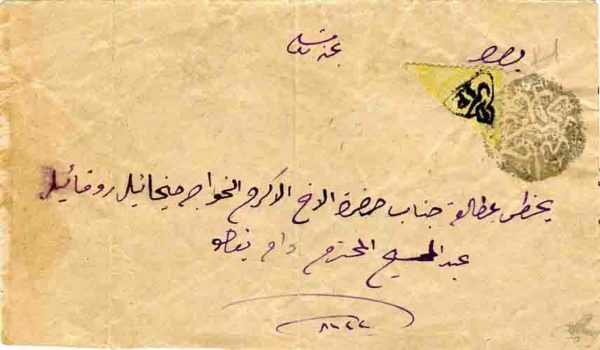 بمنه تعالى
يحظى بمطالعة جناب حضرة الاخ الاكرم الخواجه ميخائيل روفائيل
عبدالمسيح المحترم دام بقاه